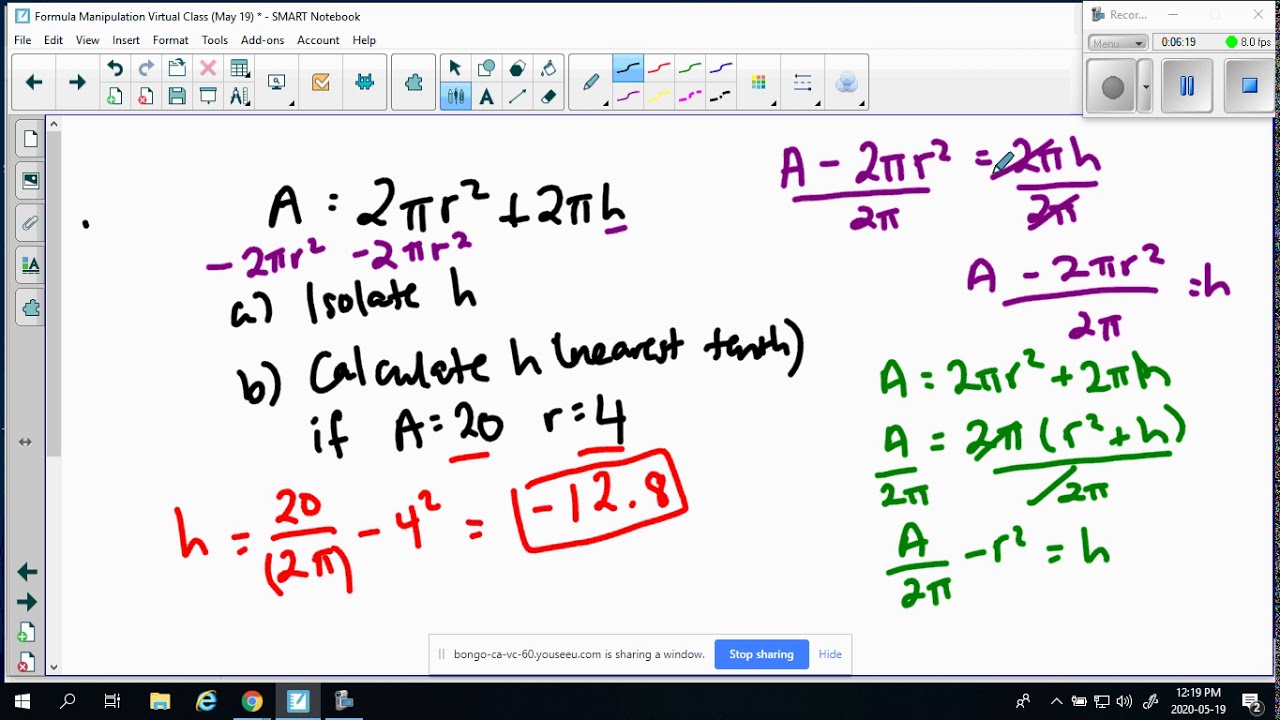 Formula Manipulation Virtual Class (May 19) * - SMART Notebook
File Edit View Insert Format Tools Add-ons Account Help
Recor...
Menu
0:06:19
8.0 fps
A = 2πr² + 2πh
-2πr² -2πr²
a) Isolate h
b) Calculate h (nearest tenth)
if A = 20 r = 4
h = 20/(2π) - 4² = -12.8
A - 2πr² = 2πh
2π 2π
A - 2πr² = h
2π
A = 2πr² + 2πh
A = 2π(r² + h)
2π 2π
A - r² = h
2π
bongo-ca-vc-60.youseeu.com is sharing a window.
Stop sharing
Hide
12:19 PM
2020-05-19
2